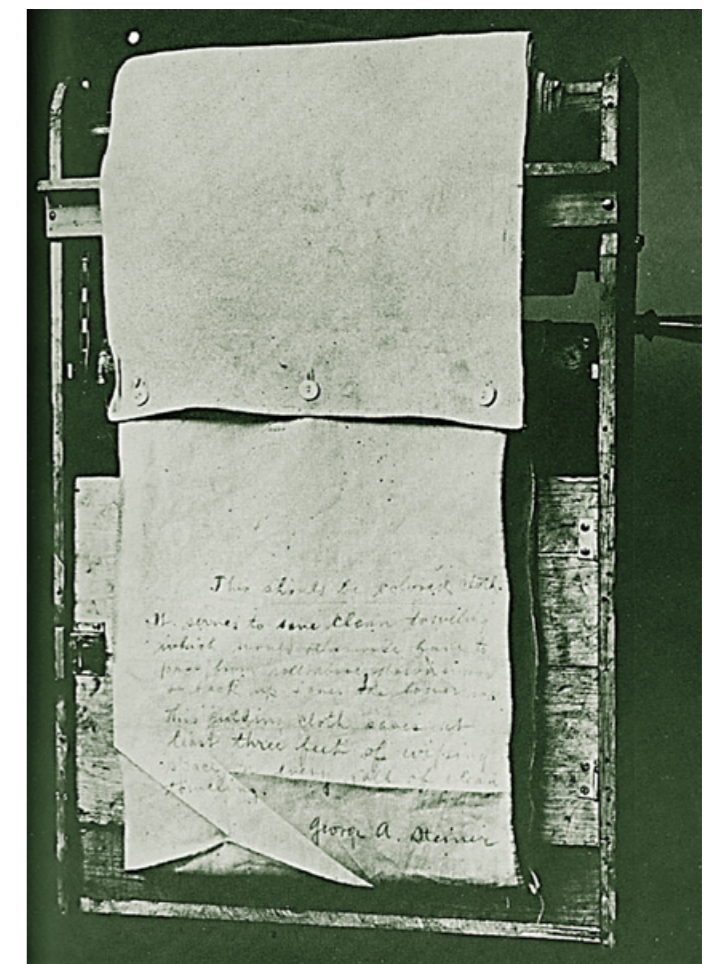 This should be colored cloth.
It serves to save clean toweling
which would otherwise have to
pass from
or back up
This guiding cloth saves at
least three feet of wiping
space on every roll of clean
toweling.
George A. Steiner